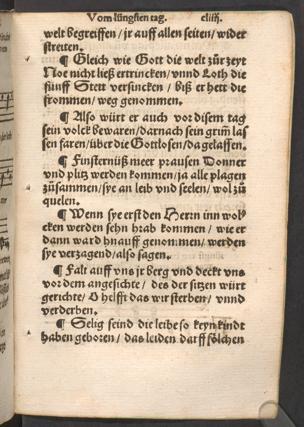 Vom jüngsten tag. cliij.
welt begreiffen / jr auff allen seiten / wider
streiten.
¶ Gleich wie Gott die welt zůr zeyt
Noe nicht ließ ertrincken / vnnd Loth die
fünff Stett versincken / biß er hett die
frommen / weg genommen.
¶ Also würt er auch vor disem tag
sein volck bewaren / darnach sein grim̃ las
sen faren / über die Gottlosen / da gelassen.
¶ Finsternüß meer prausen Donner
vnd plitz werden kommen / ja alle plagen
zůsammen / sye an leib vnd seelen / wol zů
quelen.
¶ Wenn sye erst den Herrn inn wol⸗
cken werden sehn hrab kommen / wie er
dann ward hnauff genommen / werden
sye verzagend / also sagen.
¶ Falt auff vns jr berg vnd deckt vns
vor dem angesichte / des der sitzen würt
gerichte / O helfft das wir sterben / vnnd
verderben.
¶ Selig seind die leibe so keyn kindt
haben geboren / das leiden darff sölchen